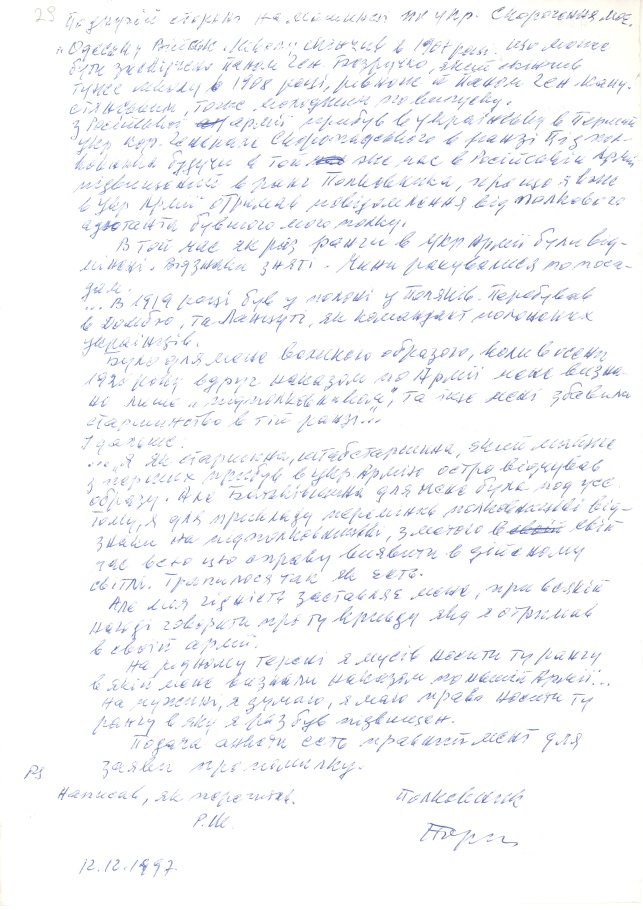 29 По другій стороні на машинці по укр. Скорочення моє.
"Одеську Військ. Школу скінчив в 1907 році. що може
бути засвідчено Паном Ген. Безручко, який кінчив
ту же школу в 1908 році, рівнож й Паном Ген. Змі
їенським, тоже молодшим по випуску.
З Російської армії прибув в українську в Перший
укр. кор. Генерала Скоропадського в ранзі Підпол-
ковника будучи в той же час в Російській Армії
підвищений в ранг Полковника, про що я вже
в Укр Армії отримав повідомлення від полкового
адютанта бувшого мого полку.
В той час як раз ранги в Укр Армії були від-
мінені. Відзнаки зняті. Чини рахувалися по поса-
дам.
... В 1919 році був у полоні у Поляків. Перебував
в Домбю, та Ланцуті, як комендант полонених
українців.
Було для мене великою образою, коли восени
1920 року вдруг наказом по Армії мене визна-
но лише "підполковником", та іще мені збавили
старшинство в тій ранзі...
І дальше:
..."Я як старшина, штабстаршина, який майже
з перших прибув в укр. Армію остро відчував
образу. Але Батьківщина для мене була над усе
тому, я для прикладу перемінив полковничі від-
знаки на підполковничі, з метою в свій
час всю цю справу виявити в дійсному
світлі. Трапилося так як єсть.
Але моя гідність заставляє мене, при всякій
нагоді говорити про ту кривду яку я отримав
в своїй армії.
На рідному терені я мусів носити ту рангу
в якій мене визнали наказом по нашій Армії...
На чужині, я думаю, я маю право носити ту
рангу в яку я раз був підвищен.
Подача анкети єсть правний мент для
заяви про помилку.
PS
Написав, як прочитав. Полковник
Р.Ш.
12.12.1997